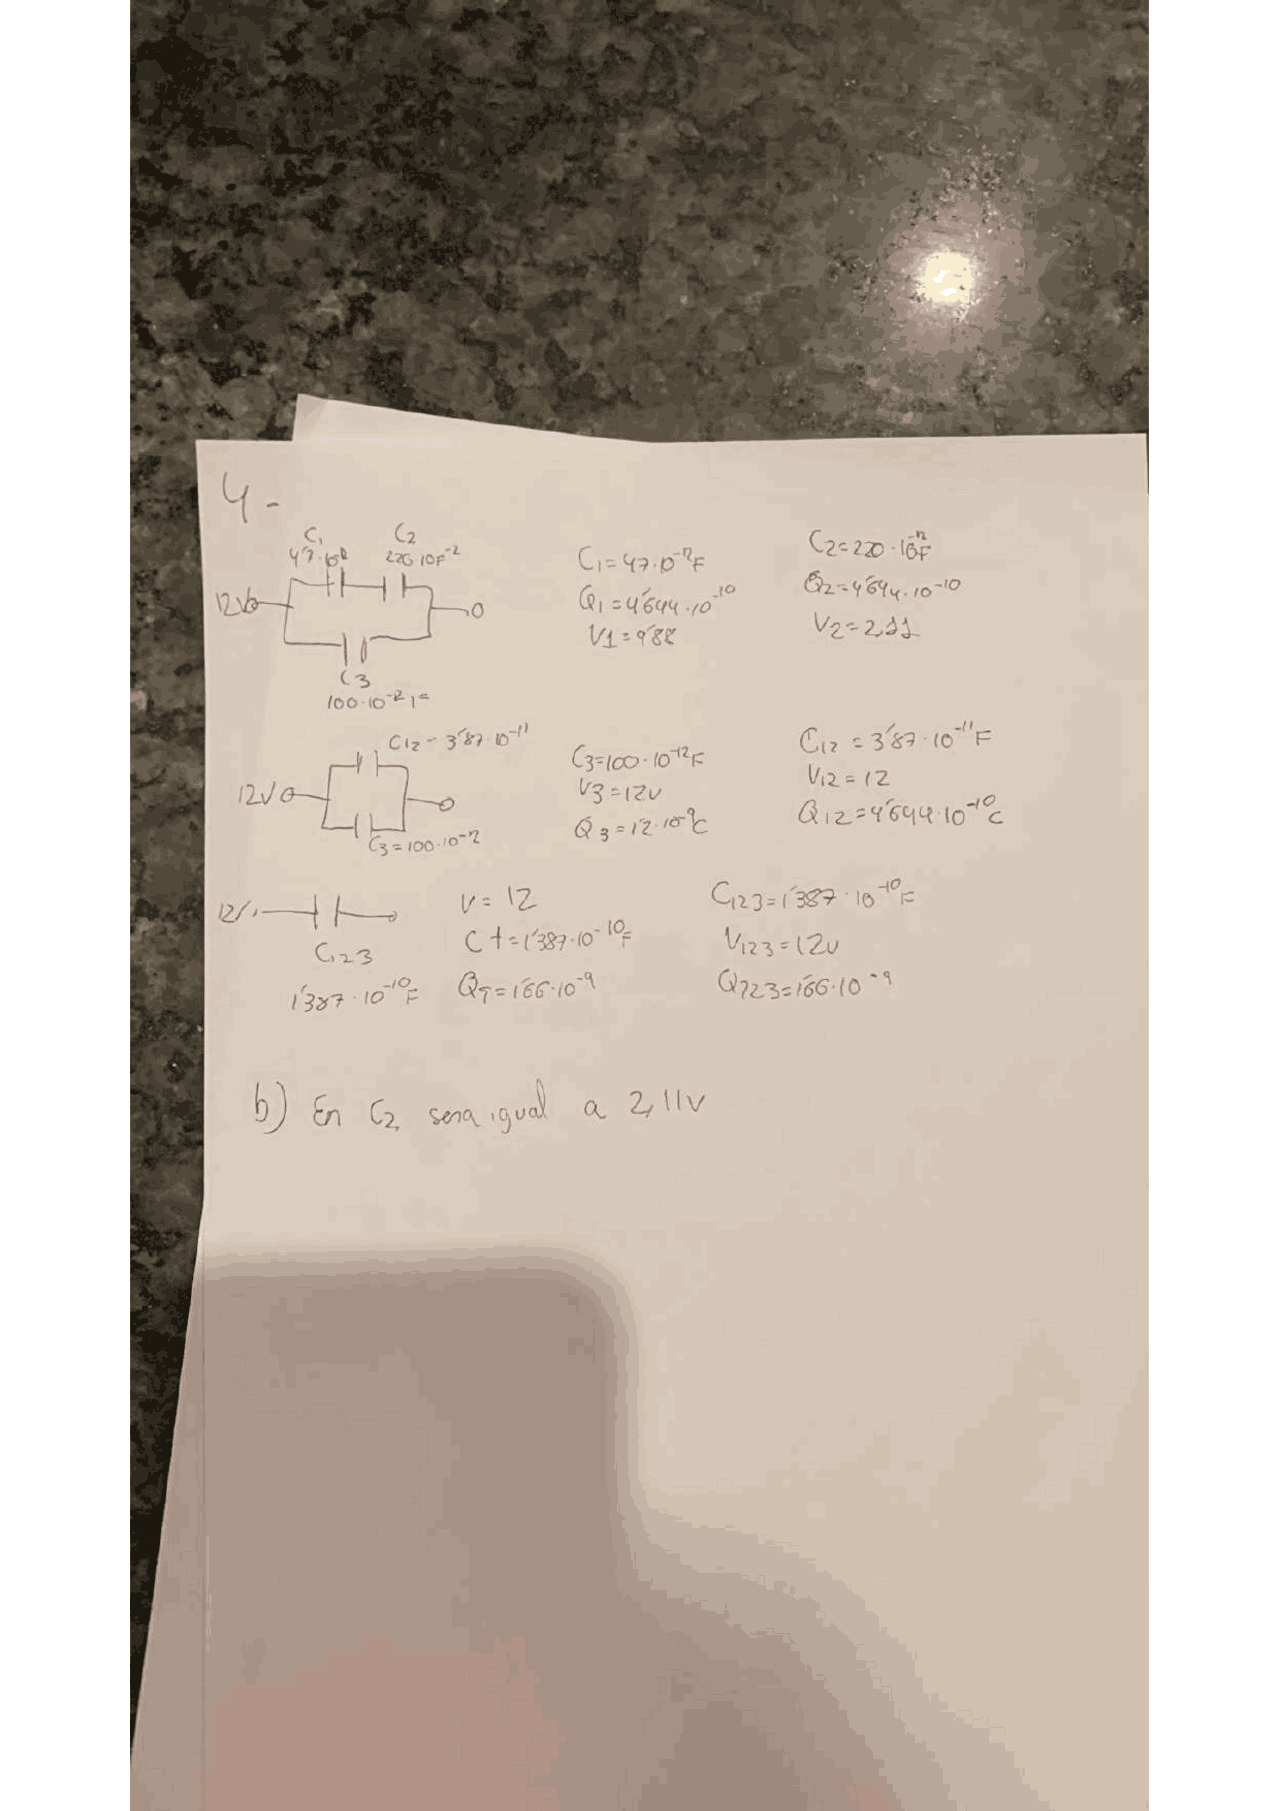 4-
C1 C2
47·10 226·10F-2
12V
C3
100·10-12 F
C1=47·10-12F
Q1=4'644·10-10
V1=9'88
C2=220·10-12F
Q2=4'644·10-10
V2=2,11
C12-3'87·10-11
12V
C3=100·10-12
C3=100·10-12F
V3=12v
Q3=12·10-9C
C12=3'87·10-11F
V12=12
Q12=4'644·10-10C
C123
1'387·10-10F
V=12
Ct=1'387·10-10F
QT=1'66·10-9
C123=1'387·10-10F
V123=12v
Q123=1'66·10-9
b) En C2 sera igual a 2,11v